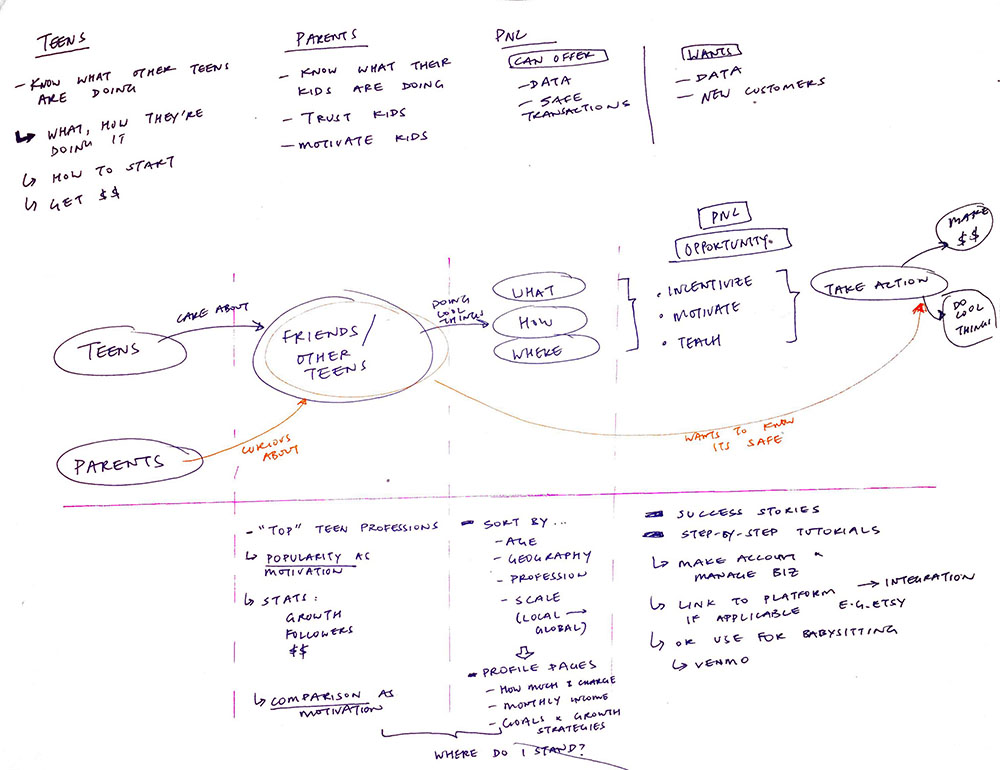 TEENS
- KNOW WHAT OTHER TEENS
ARE DOING
↳ WHAT, HOW THEY'RE
DOING IT
↳ HOW TO START
↳ GET $$
PARENTS
- KNOW WHAT THEIR
KIDS ARE DOING
- TRUST KIDS
- MOTIVATE KIDS
PNC
CAN OFFER
- DATA
- SAFE
TRANSACTIONS
WANTS
- DATA
- NEW CUSTOMERS
TEENS
CARE ABOUT
FRIENDS/
OTHER
TEENS
DOING
COOL
THINGS
WHAT
HOW
WHERE
PNC
OPPORTUNITY.
• INCENTIVIZE
• MOTIVATE
• TEACH
TAKE ACTION
MAKE
$$
DO
COOL
THINGS!
PARENTS
CURIOUS
ABOUT
WANTS TO KNOW
ITS SAFE
- "TOP" TEEN PROFESSIONS
↳ POPULARITY AS
MOTIVATION
↳ STATS:
GROWTH
FOLLOWERS
$$
↳ COMPARISON AS
MOTIVATION
- SORT BY...
- AGE
- GEOGRAPHY
- PROFESSION
- SCALE
(LOCAL →
GLOBAL)
- PROFILE PAGES
- HOW MUCH I CHARGE
- MONTHLY INCOME
- GOALS & GROWTH
STRATEGIES
WHERE DO I STAND?
- SUCCESS STORIES
- STEP-BY-STEP TUTORIALS
↳ MAKE ACCOUNT &
MANAGE BIZ
↳ LINK TO PLATFORM → INTEGRATION
IF APPLICABLE E.G. ETSY
↳ OR USE FOR BABYSITTING
↳ VENMO